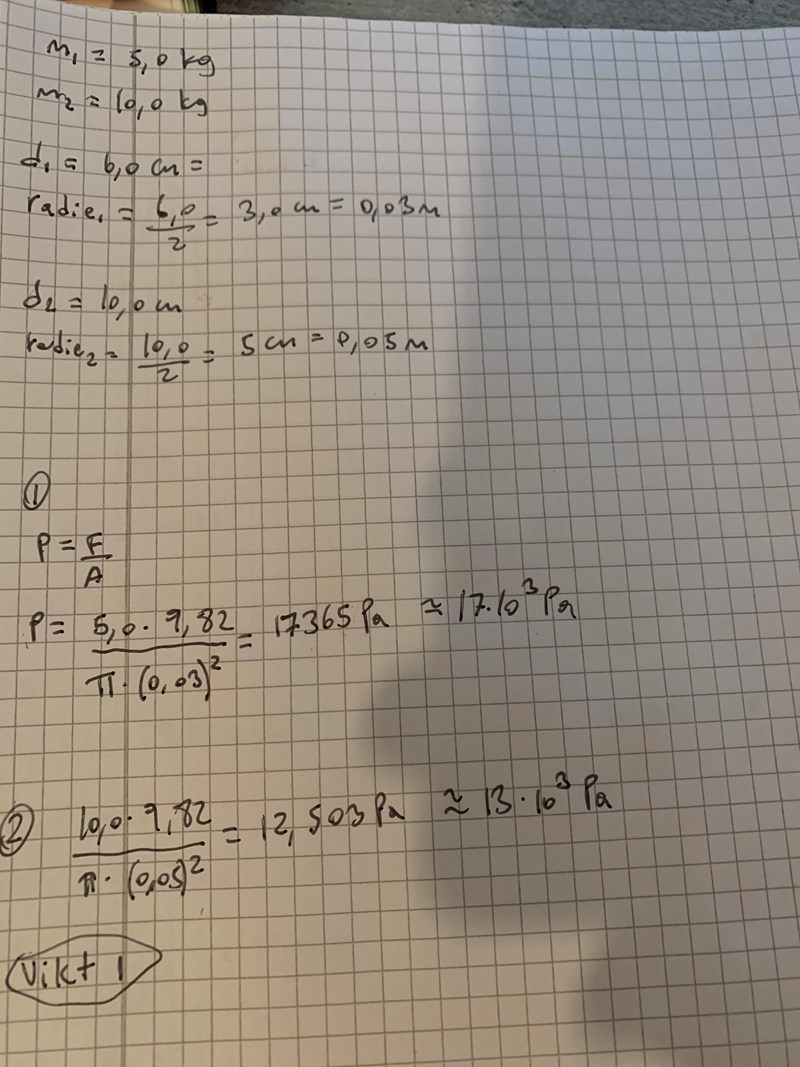 m₁ = 5,0 kg
m₂ = 10,0 kg
d₁ = 6,0 cm =
radie₁ = 6,0/2 = 3,0 cm = 0,03 m
d₂ = 10,0 cm
radie₂ = 10,0/2 = 5 cm = 0,05 m
①
P = F/A
P = 5,0 · 9,82 / π · (0,03)² = 17365 Pa ≈ 17·10³ Pa
② 10,0 · 9,82 / π · (0,05)² = 12,503 Pa ≈ 13 · 10³ Pa
Vikt 1